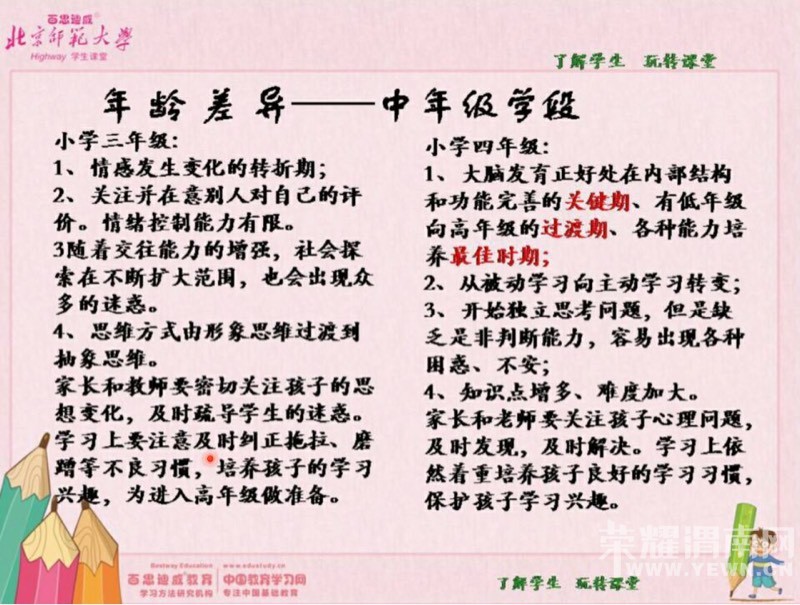 百思迪威
北京师范大学
Highway 学生课堂
了解学生 玩转课堂
年龄差异——中年级学段
小学三年级:
1、情感发生变化的转折期;
2、关注并在意别人对自己的评
价。情绪控制能力有限。
3随着交往能力的增强,社会探
索在不断扩大范围,也会出现众
多的迷惑。
4、思维方式由形象思维过渡到
抽象思维。
家长和教师要密切关注孩子的思
想变化,及时疏导学生的迷惑。
学习上要注意及时纠正拖拉、磨
蹭等不良习惯,培养孩子的学习
兴趣,为进入高年级做准备。
小学四年级:
1、大脑发育正好处在内部结构
和功能完善的关键期、有低年级
向高年级的过渡期、各种能力培
养最佳时期;
2、从被动学习向主动学习转变;
3、开始独立思考问题,但是缺
乏是非判断能力,容易出现各种
困惑、不安;
4、知识点增多、难度加大。
家长和老师要关注孩子心理问题,
及时发现,及时解决。学习上依
然着重培养孩子良好的学习习惯,
保护孩子学习兴趣。
Bestway Education
百思迪威教育
学习方法研究机构
www.edustudy.cn
中国教育学习网
专注中国基础教育
了解学生 玩转课堂
荣耀渭南网
WWW.YEWN.CN